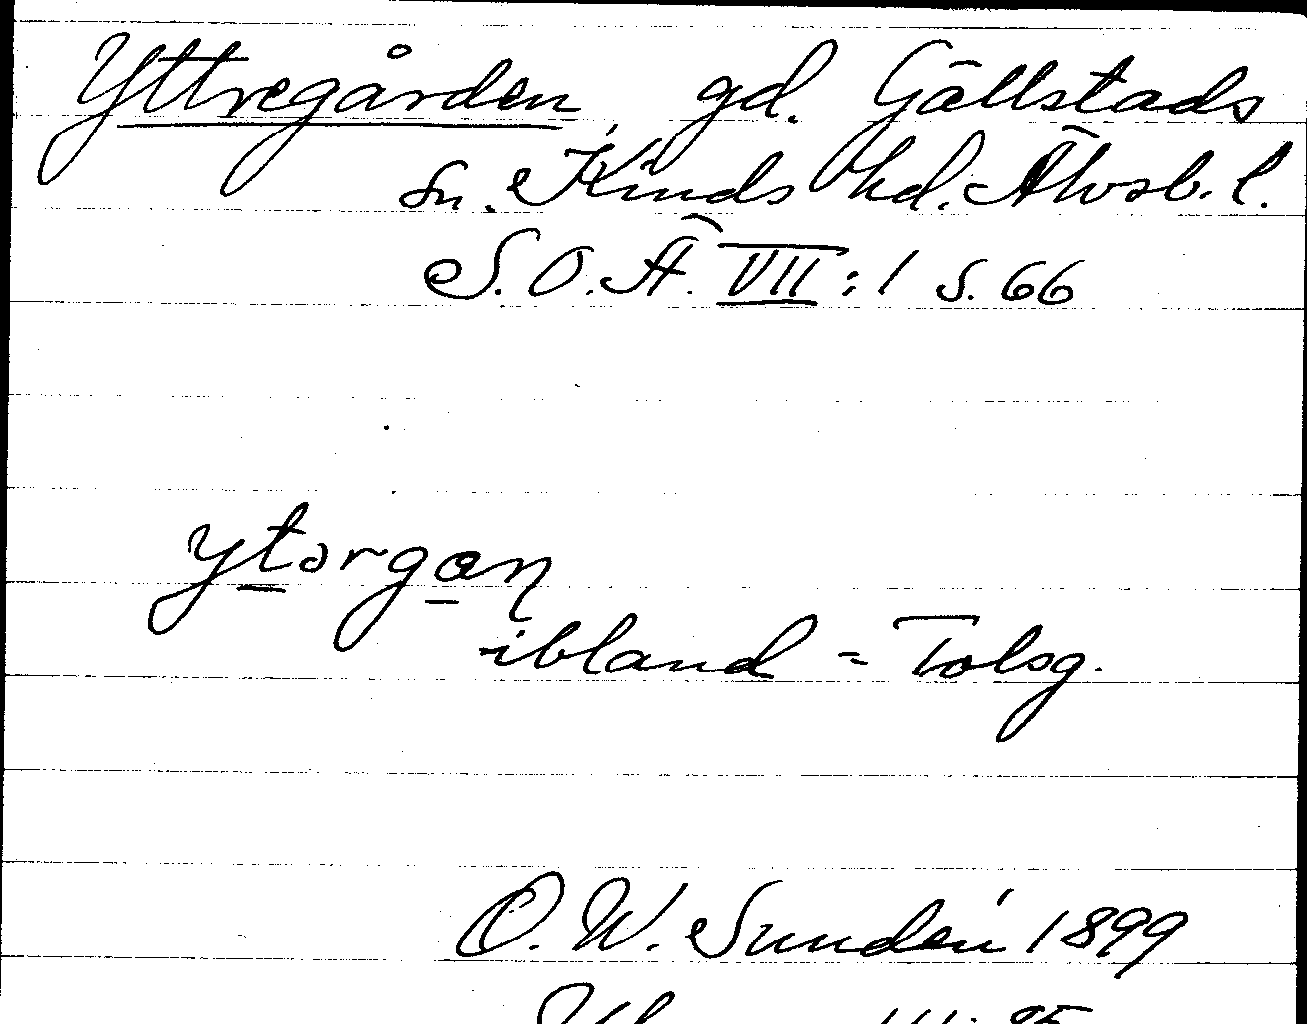 Yttregården, gd. Gällstads
sn. Kinds hd. Älvsb. l.
S. O. Ä. VII : 1 s. 66
ytərgan
ibland = Tolsg.
O. W. Sundén 1899